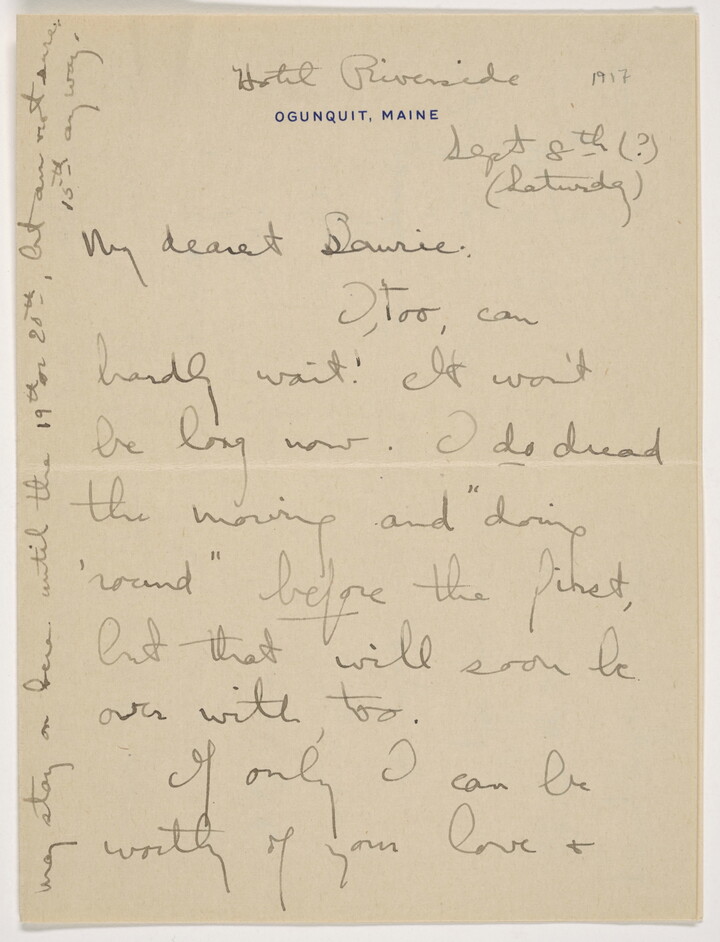 Hotel Riverside 1917
OGUNQUIT, MAINE
Sept 8th (?)
(Saturday)
My dearest Laurie:
I, too, can
hardly wait! It won't
be long now. I do dread
the moving and "doing
'round" before the first,
but that will soon be
over with, too.
If only I can be
worthy of your love +
may stay on here until the 19th or 20th, but am not sure.
15th any way.